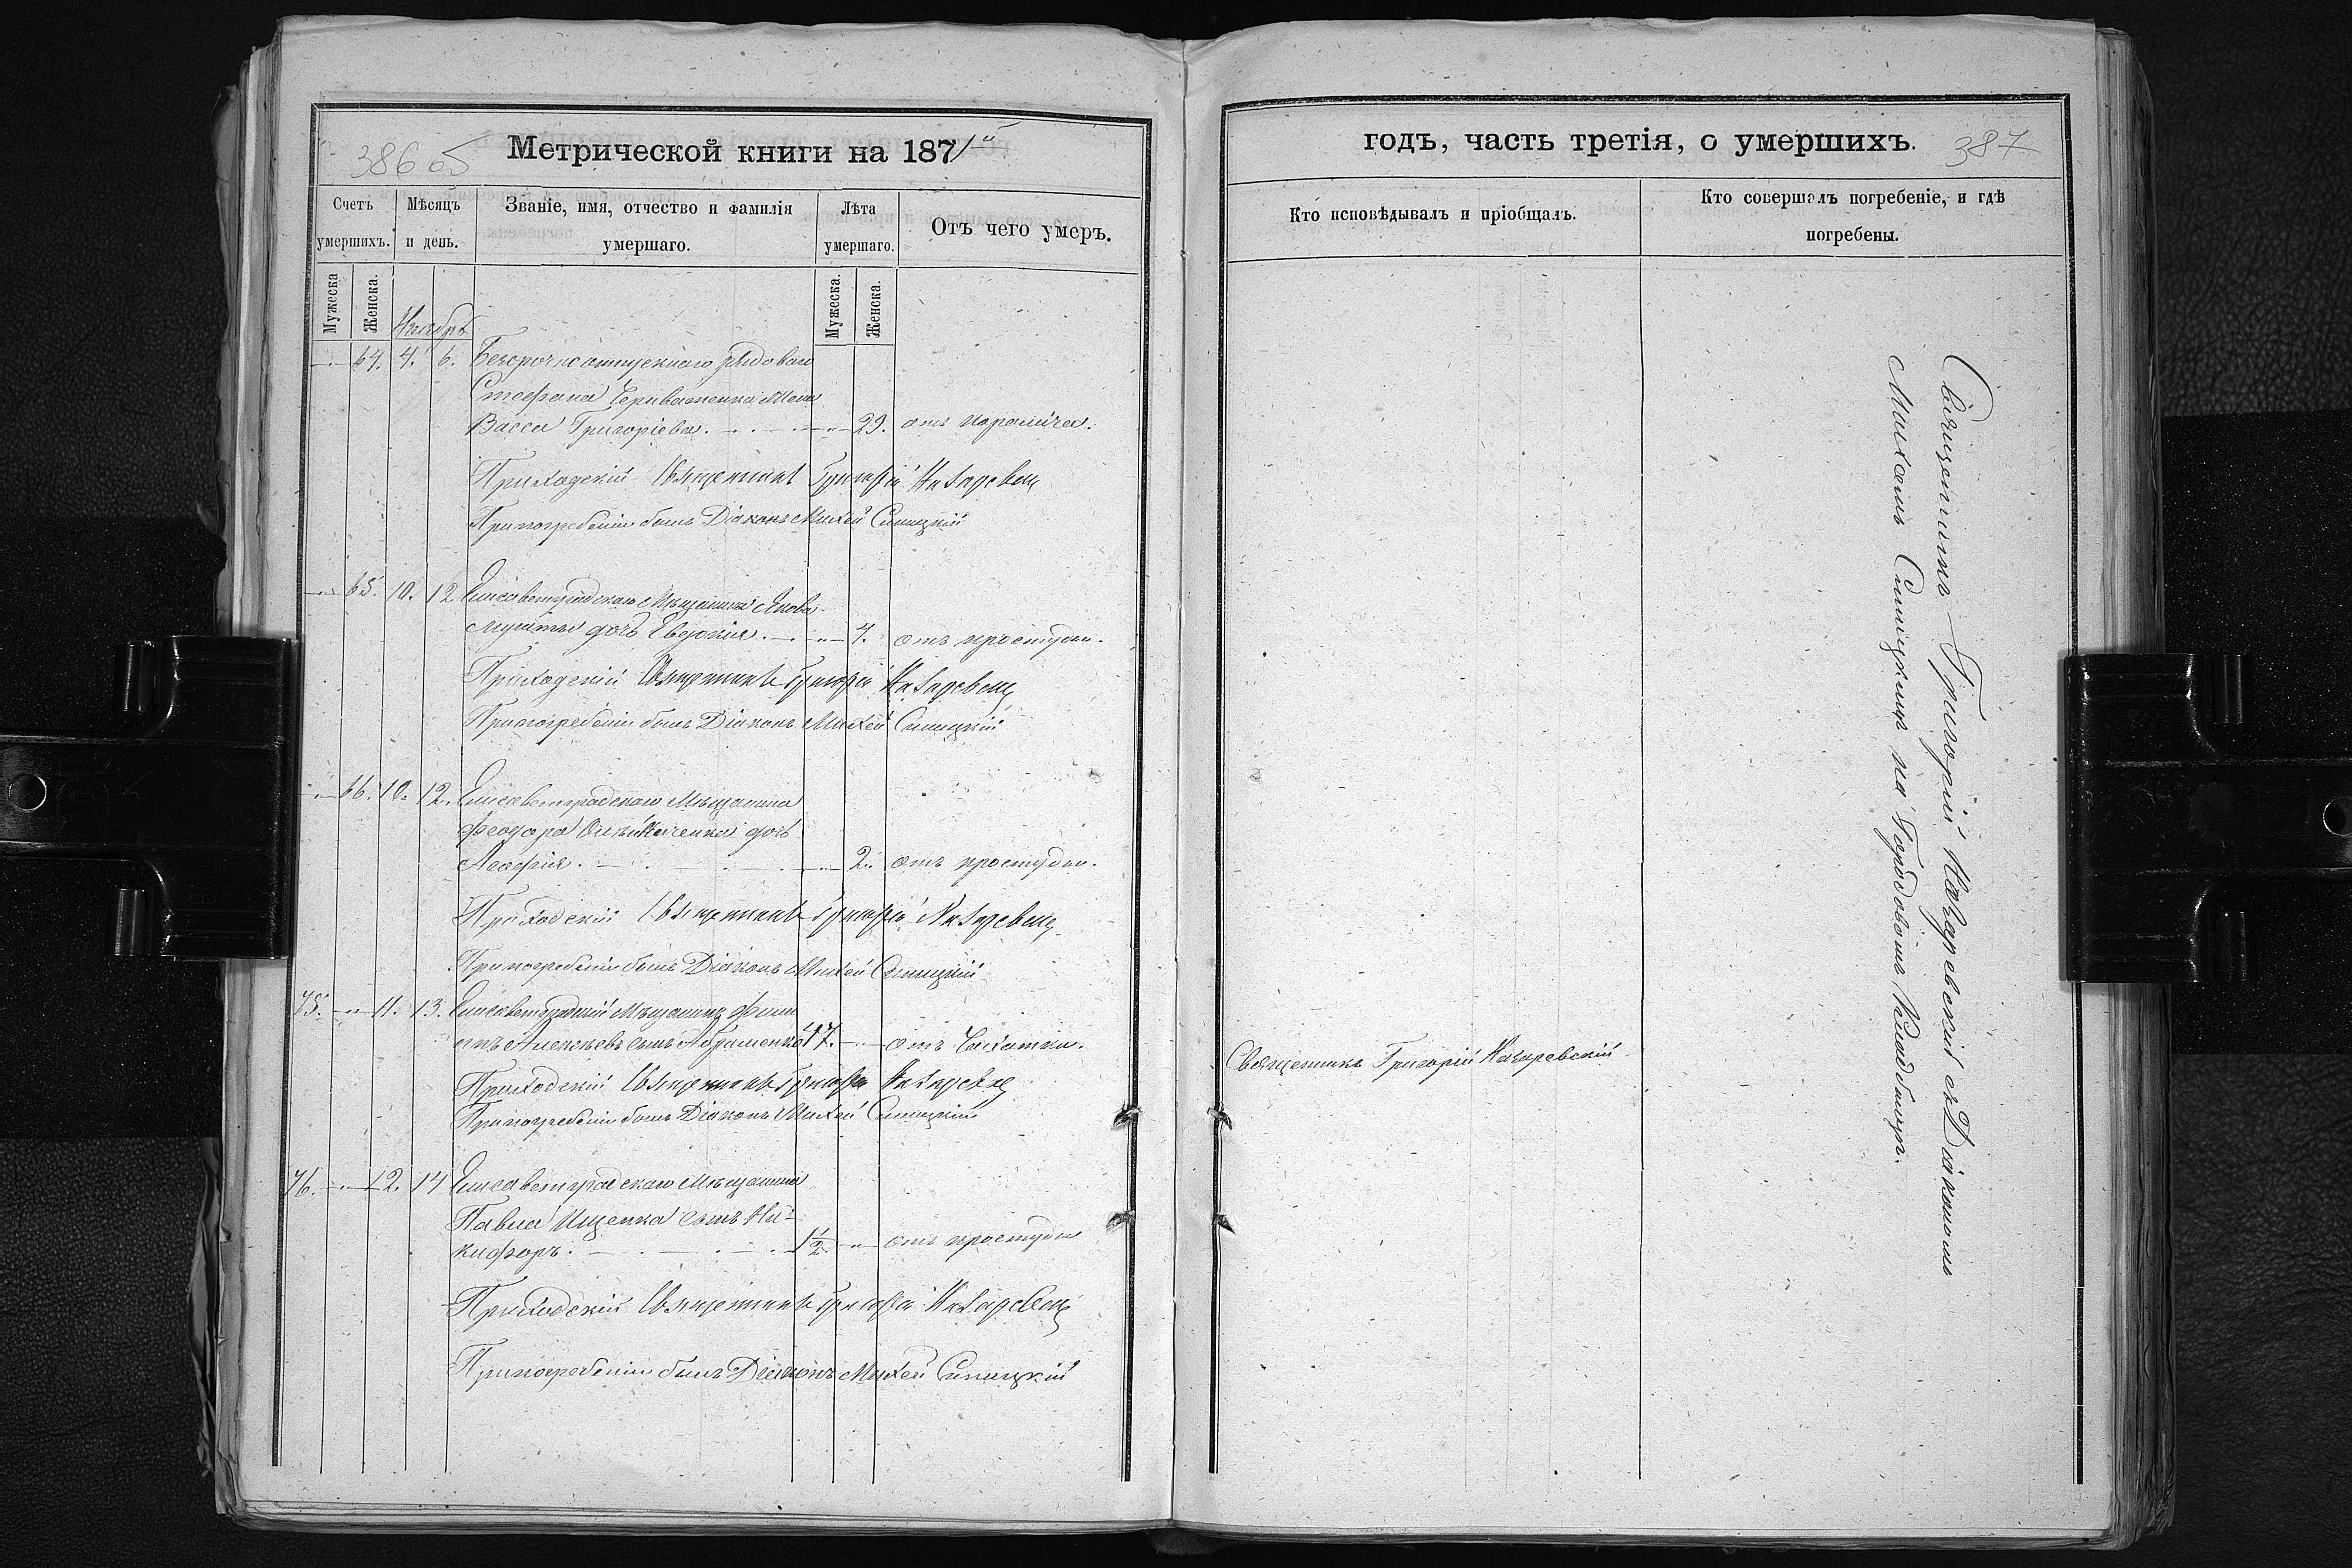 386 об
Метрической книги на 1871й
Счетъ умершихъ.
Мѣсяцъ и день.
Званіе, имя, отчество и фамилія умершаго.
Лѣта умершаго.
Отъ чего умеръ.
Мужеска
Женска.
Мужеска.
Женска.
Ноябрь
64. 4. 6. Безсрочно отпускного рядового
Стефана жена
Васса Григоріева. 29. отъ паралича.
Приходскій Священникъ Григорій Назаревскій
При погребеніи былъ Діаконъ Михей Синицкій
65. 10. 12 Елисаветградскаго Мѣщанина Якова
дочь Евдокія. 4. отъ простуды.
Приходскій Священникъ Григорій Назаревскій
При погребеніи былъ Діаконъ Михей Синицкій
66. 10. 12. Елисаветградскаго Мѣщанина
Феодора дочь
Агафія. 2. отъ простуды.
Приходскій Священникъ Григорій Назаревскій
При погребеніи былъ Діаконъ Михей Синицкій
75. 11. 13. Елисаветградскій Мѣщанинъ Фили
ппъ Алексѣевъ сынъ Абраменко 47. отъ Чахотки.
Приходскій Священникъ Григорій Назаревскій
При погребеніи былъ Діаконъ Михей Синицкій
76. 12. 14 Елисаветградскаго Мѣщанина
Павла Ищенка сынъ Ни-
кифоръ. 1/2 отъ простуды
Приходскій Священникъ Григорій Назаревскій
При погребеніи былъ Діаконъ Михей Синицкій
годъ, часть третія, о умершихъ.
387
Кто исповѣдывалъ и пріобщалъ.
Кто совершалъ погребеніе, и гдѣ погребены.
Священникъ Григорій Назаревскій
Священникъ Григорій Назаревскій съ Діакономъ
Михеемъ Синицкимъ на Городовомъ Кладбищѣ.